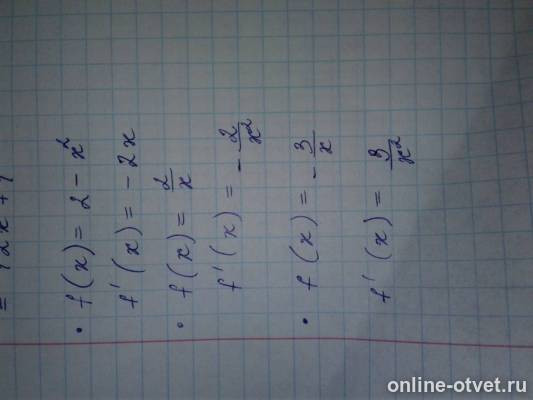 = 12x+1
• f(x) = 2 - x²
f'(x) = - 2x
• f(x) = 2/x
f'(x) = - 2/x²
• f(x) = - 3/x
f'(x) = 3/x²
online-otvet.ru